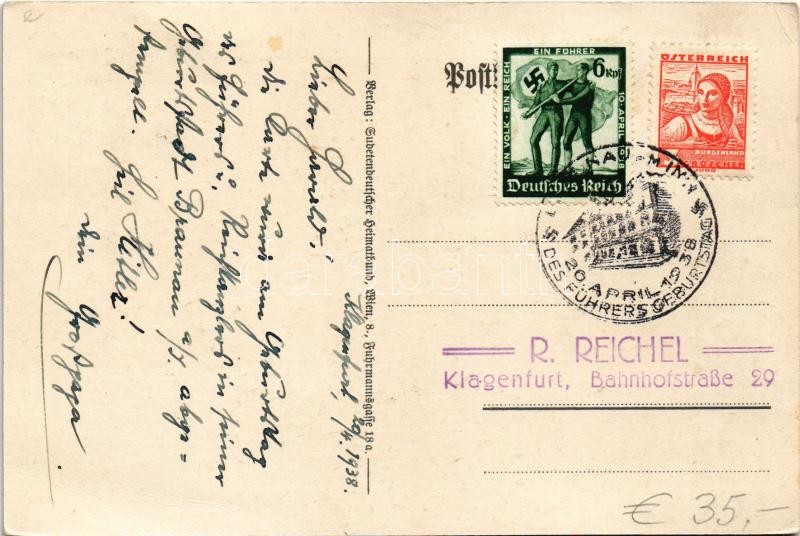 Klagenfurt, 20/4. 1938.
Lieber Harald!
Die Karte wird am Geburtstag
des Führers u. Reichskanzlers in seiner
Geburtsstadt Braunau a/I. abge=
stempelt. Heil Hitler!
Dein Grosspapa
Verlag: Sudetendeutscher Heimatbund, Wien, 8., Fuhrmannsgasse 18 a.
Post
EIN VOLK · EIN REICH
EIN FÜHRER
10. APRIL 1938
6 Rpf
Deutsches Reich
ÖSTERREICH
BURGENLAND
GROSCHEN
AM INN
20 APRIL 1938
DES FÜHRERS GEBURTSTAG
R. REICHEL
Klagenfurt, Bahnhofstraße 29
€ 35,-
darabanth